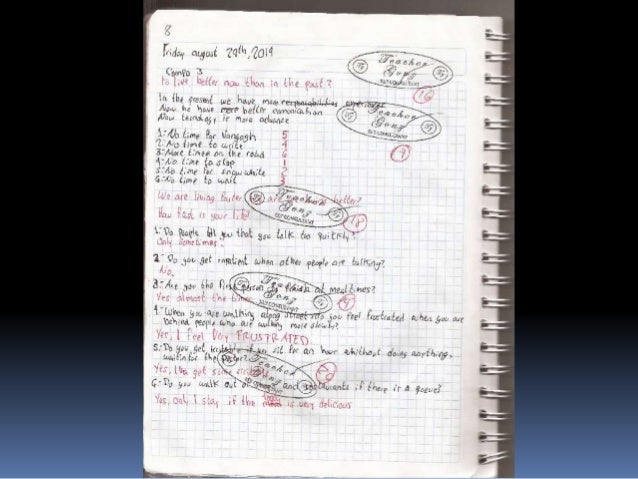 8
Friday august 29th, 2014
Compo 3
To live better now than in the past?
In the present we have more responsabilities
Now he have more better comonication
Now tecnology is more advance
1:-No time for Vangogh 5
2:-No time to write 4
3:-More time on the road 6
4:-No time to stop 1
5:-No time for snow white 2
6:-No time to wait 3
We are living faster are better?
How fast is your life?
1:-Do people tell you that you talk too quickly?
Only sometimes.
2:-Do you get inpatient when other people are talking?
No.
3:-Are you the first person to finish at mealtimes?
Yes almost the times
4:-When you are walking along street do you feel frustrated when you are
behind people who are walking more slowly?
Yes, I feel Very FRUSTRATED.
5:-Do you get irritable if you sit for an hour whithout doing anything,
waitin for the doctor?
Yes, I get
6:-Do you walk out of and restaurants if there is a queue?
Yes, only I stay if the food is very delicious
Teacher
Gony
Teacher
Gony
Teacher
Gony
Teacher
Teacher